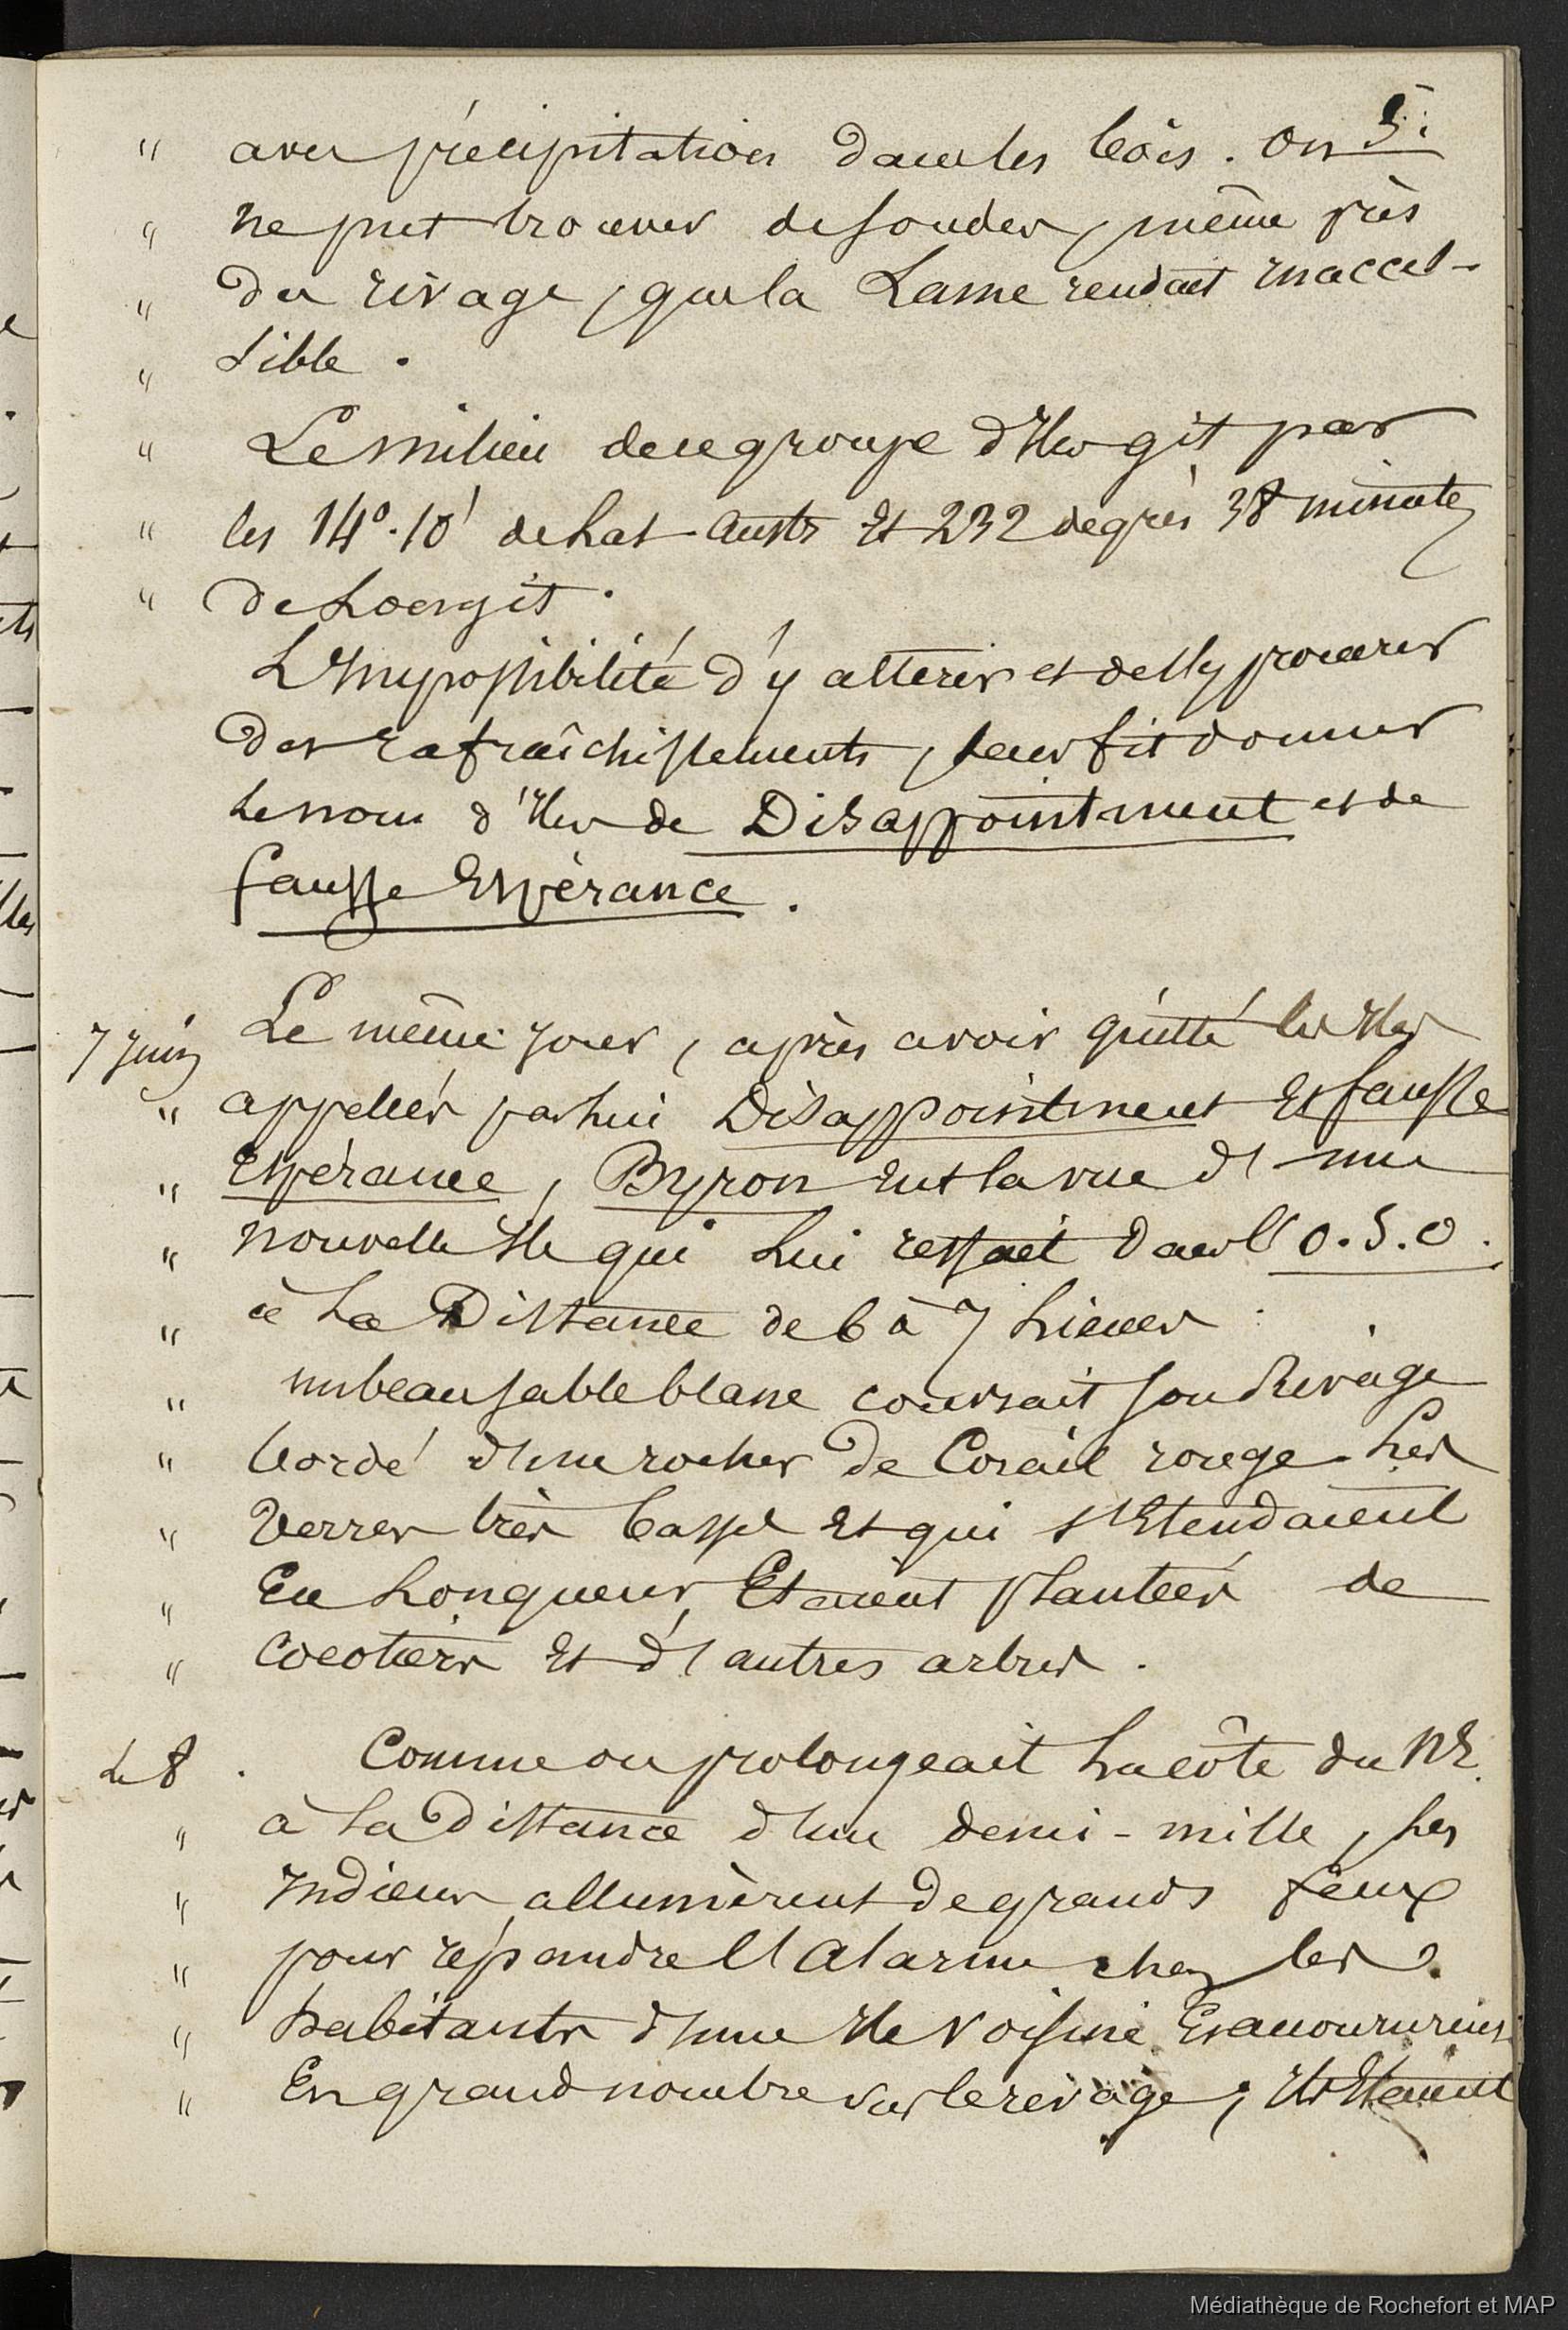 5.
" avec précipitation dans les bois. On
" ne put trouver de sonder, même près
" du rivage, que la Lame rendait inacces-
" sible.
" Le milieu de ce groupe d'Iles gît par
" les 14°.10' de Lat Austr Et 232 degrés 38 minutes
" de Longit.
L'Impossibilité d'y atterir et de s'y procurer
des rafraîchissements, leur fit donner
le nom d'Iles de Disappointment et de
fausse Espérance.
7 Juin Le même jour, après avoir quitté les Iles
" appellées par lui Disappointment Et fausse
" Espérance, Byron Eut la vue d'une
" nouvelle Ile qui lui restait dans l'O.S.O.
" à la Distance de 6 à 7 Lieues
" un beau sable blanc couvrait son Rivage
" bordé d'une rocher de Corail rouge. Les
" Terres très basses Et qui s'Etendaient
" En Longueur, Etaient plantées de
" Cocotiers Et d'autres arbres.
Le 8. Comme on prolongeait La côte du NE.
" à La Distance d'un demi-mille, les
" Indiens allumèrent de grands feux
" pour répandre l'Alarme chez les
" habitants d'une Ile voisine Et accoururent
" En grand nombre sur le rivage; Ils Etaient
Médiathèque de Rochefort et MAP